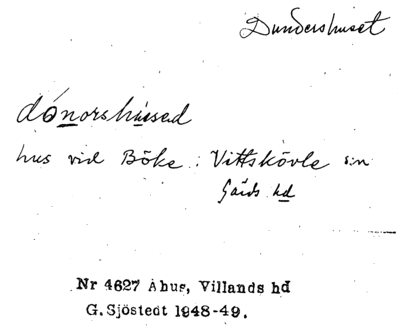 Dundershuset
dónorshùsed
hus vid Böke i Vittskövle sn
Gärds hd
Nr 4627 Åhus, Villands hd
G. Sjöstedt 1948-49.